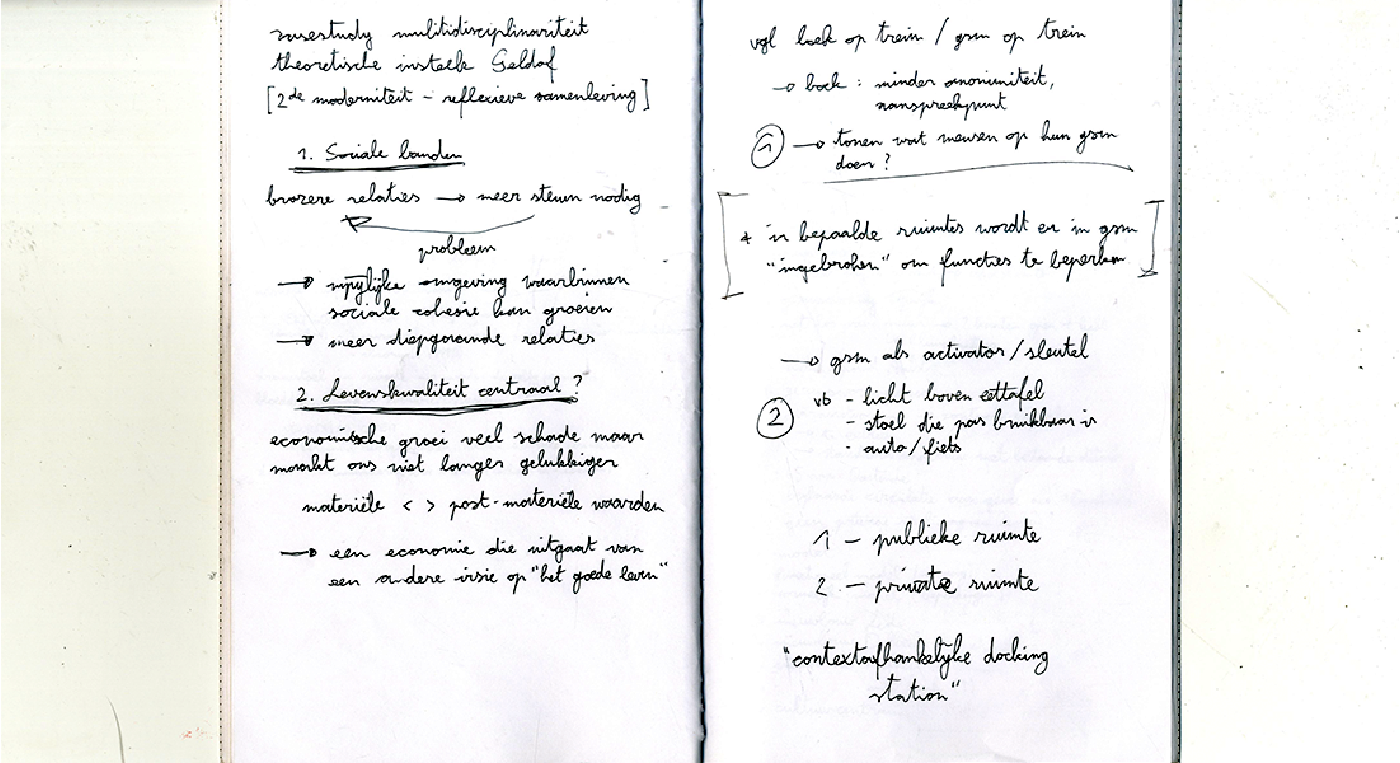 casestudy multidisciplinariteit
theoretische insteek Geldof
[2de moderniteit - reflexieve samenleving]
1. Sociale banden
brozere relaties → meer steun nodig
probleem
→ omgeving waarbinnen
sociale cohesie kan groeien
→ meer diepgaande relaties
2. Levenskwaliteit centraal?
economische groei veel schade maar
maakt ons niet langer gelukkiger
materiële < > post-materiële waarden
→ een economie die uitgaat van
een andere visie op "het goede leven"
vgl boek op trein / gsm op trein
→ boek : minder anonimiteit,
aanspreekpunt
1 → tonen wat mensen op hun gsm
doen ?
* in bepaalde ruimtes wordt er in gsm
"ingebroken" om functies te beperken
→ gsm als activator/sleutel
2 vb - licht boven eettafel
- stoel die pas bruikbaar is
- auto/fiets
1 - publieke ruimte
2 - private ruimte
"contextafhankelijke docking
station"